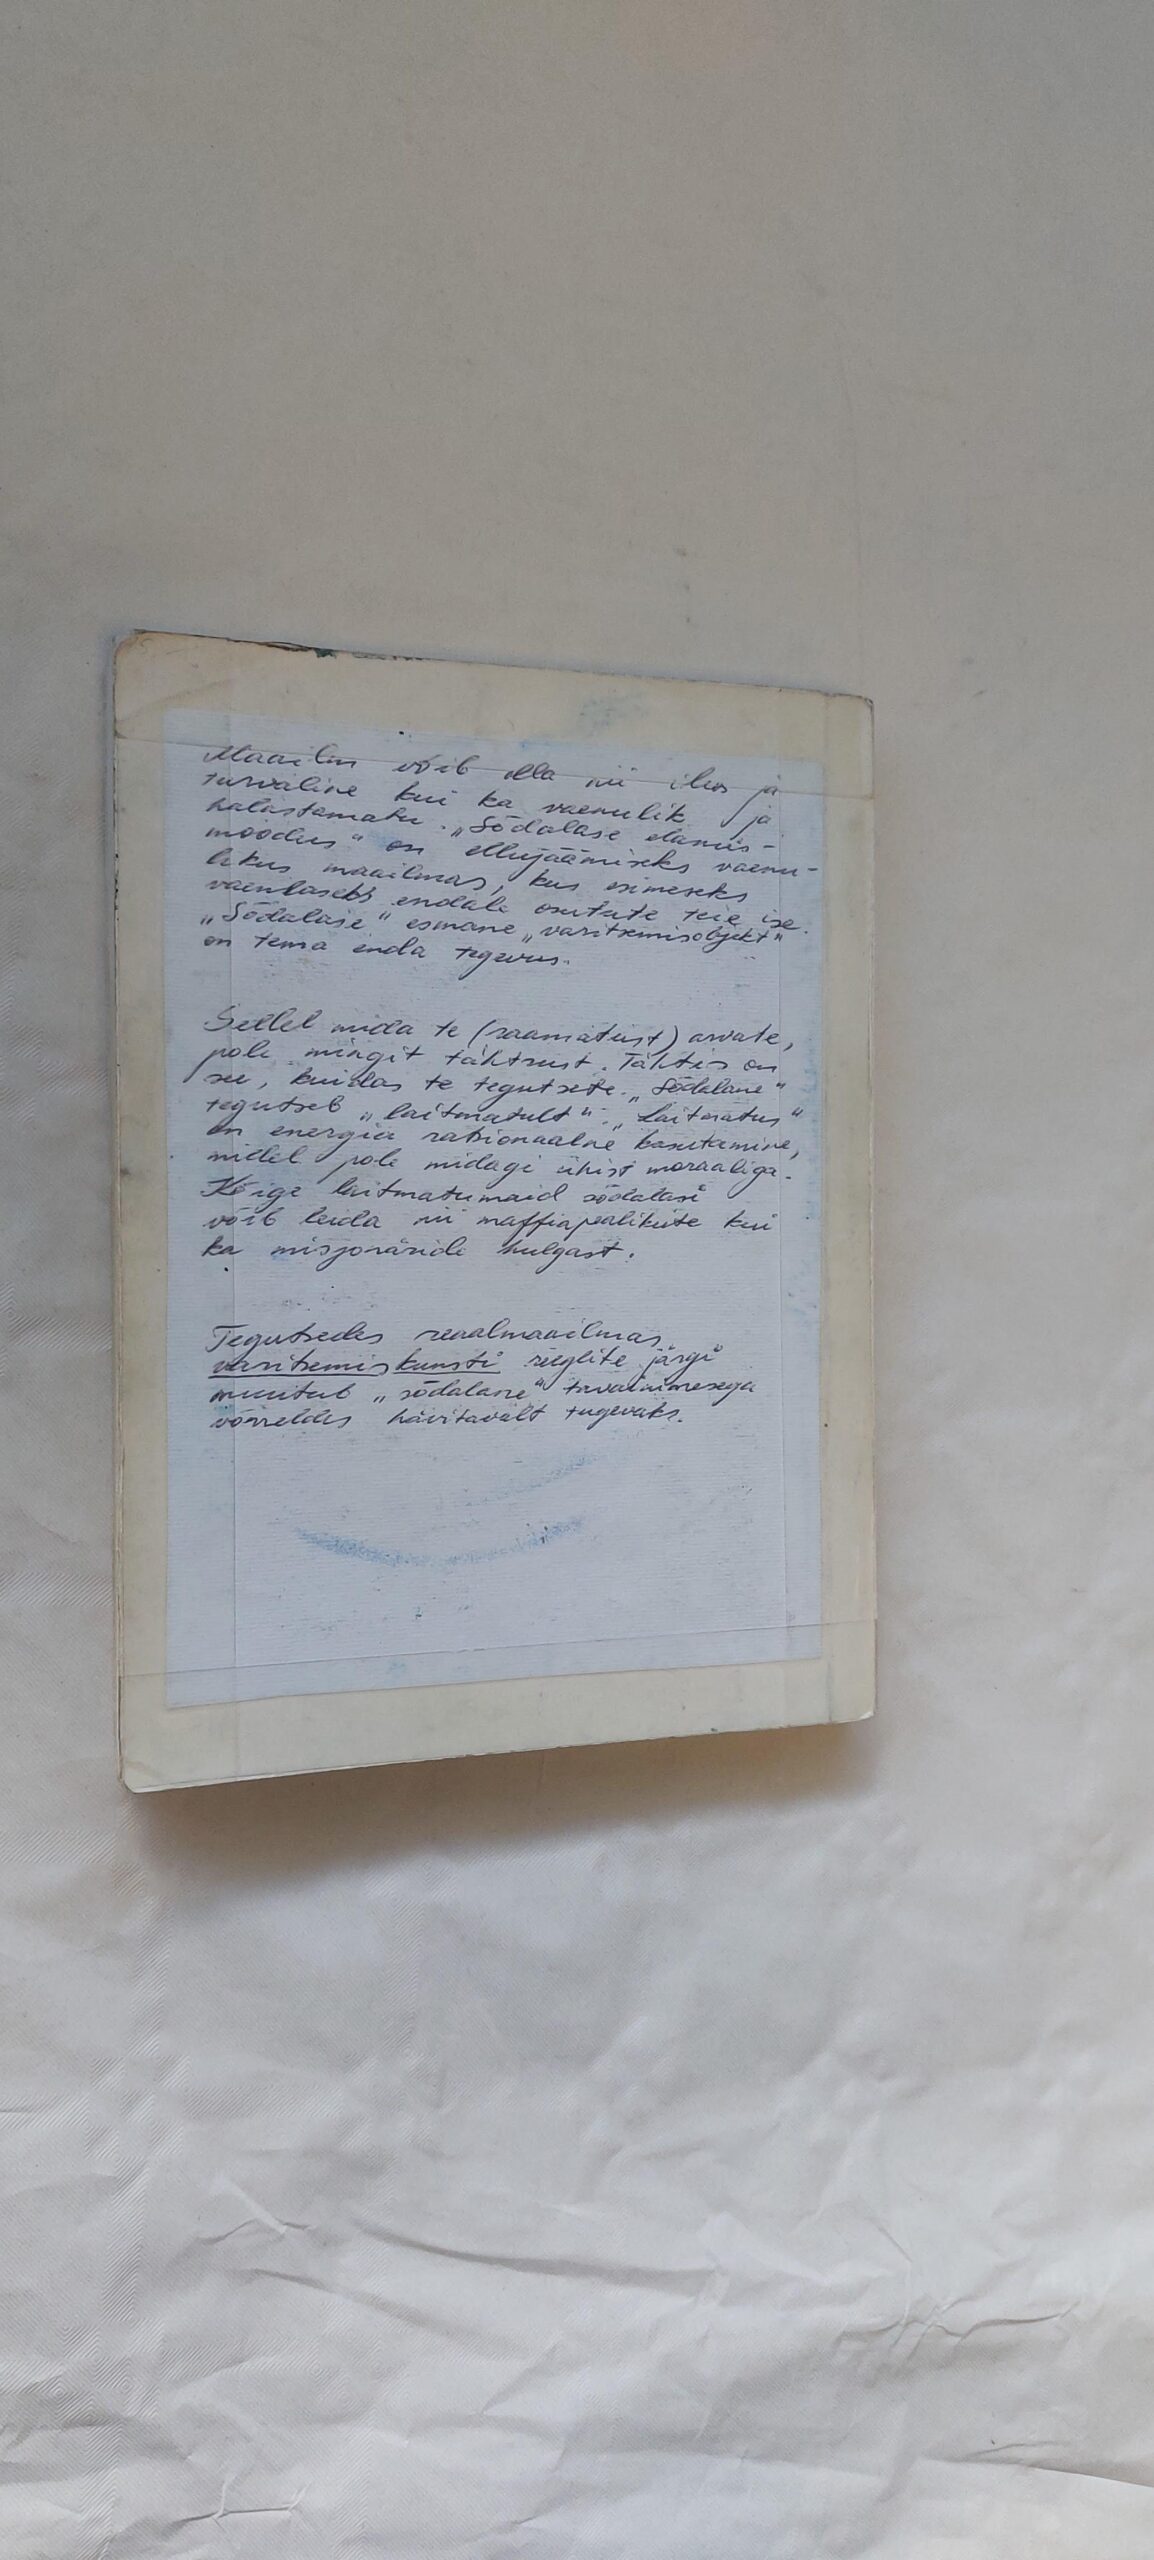 Maailm võib olla nii ilus ja
turvaline kui ka vaenulik ja
halastamatu. „Sõdalase elamis-
moodus“ on ellujäämiseks vaenu-
likus maailmas, kus esimeseks
vaenlaseks endale osutute teie ise.
„Sõdalase“ esmane „varitsemisobjekt“
on tema enda tegevus.
Sellel mida te (raamatust) arvate,
pole mingit tähtsust. Tähtis on
see, kuidas te tegutsete. „Sõdalane“
tegutseb „laitmatult“. „Laitmatus“
on energia ratsionaalne kasutamine,
millel pole midagi ühist moraaliga.
Kõige laitmatumaid sõdalasi
võib leida nii maffiapealikute kui
ka misjonäride hulgast.
Tegutsedes reaalmaailmas
varitsemiskunsti reeglite järgi
muutub „sõdalane“ tavainimesega
võrreldes hävitavalt tugevaks.